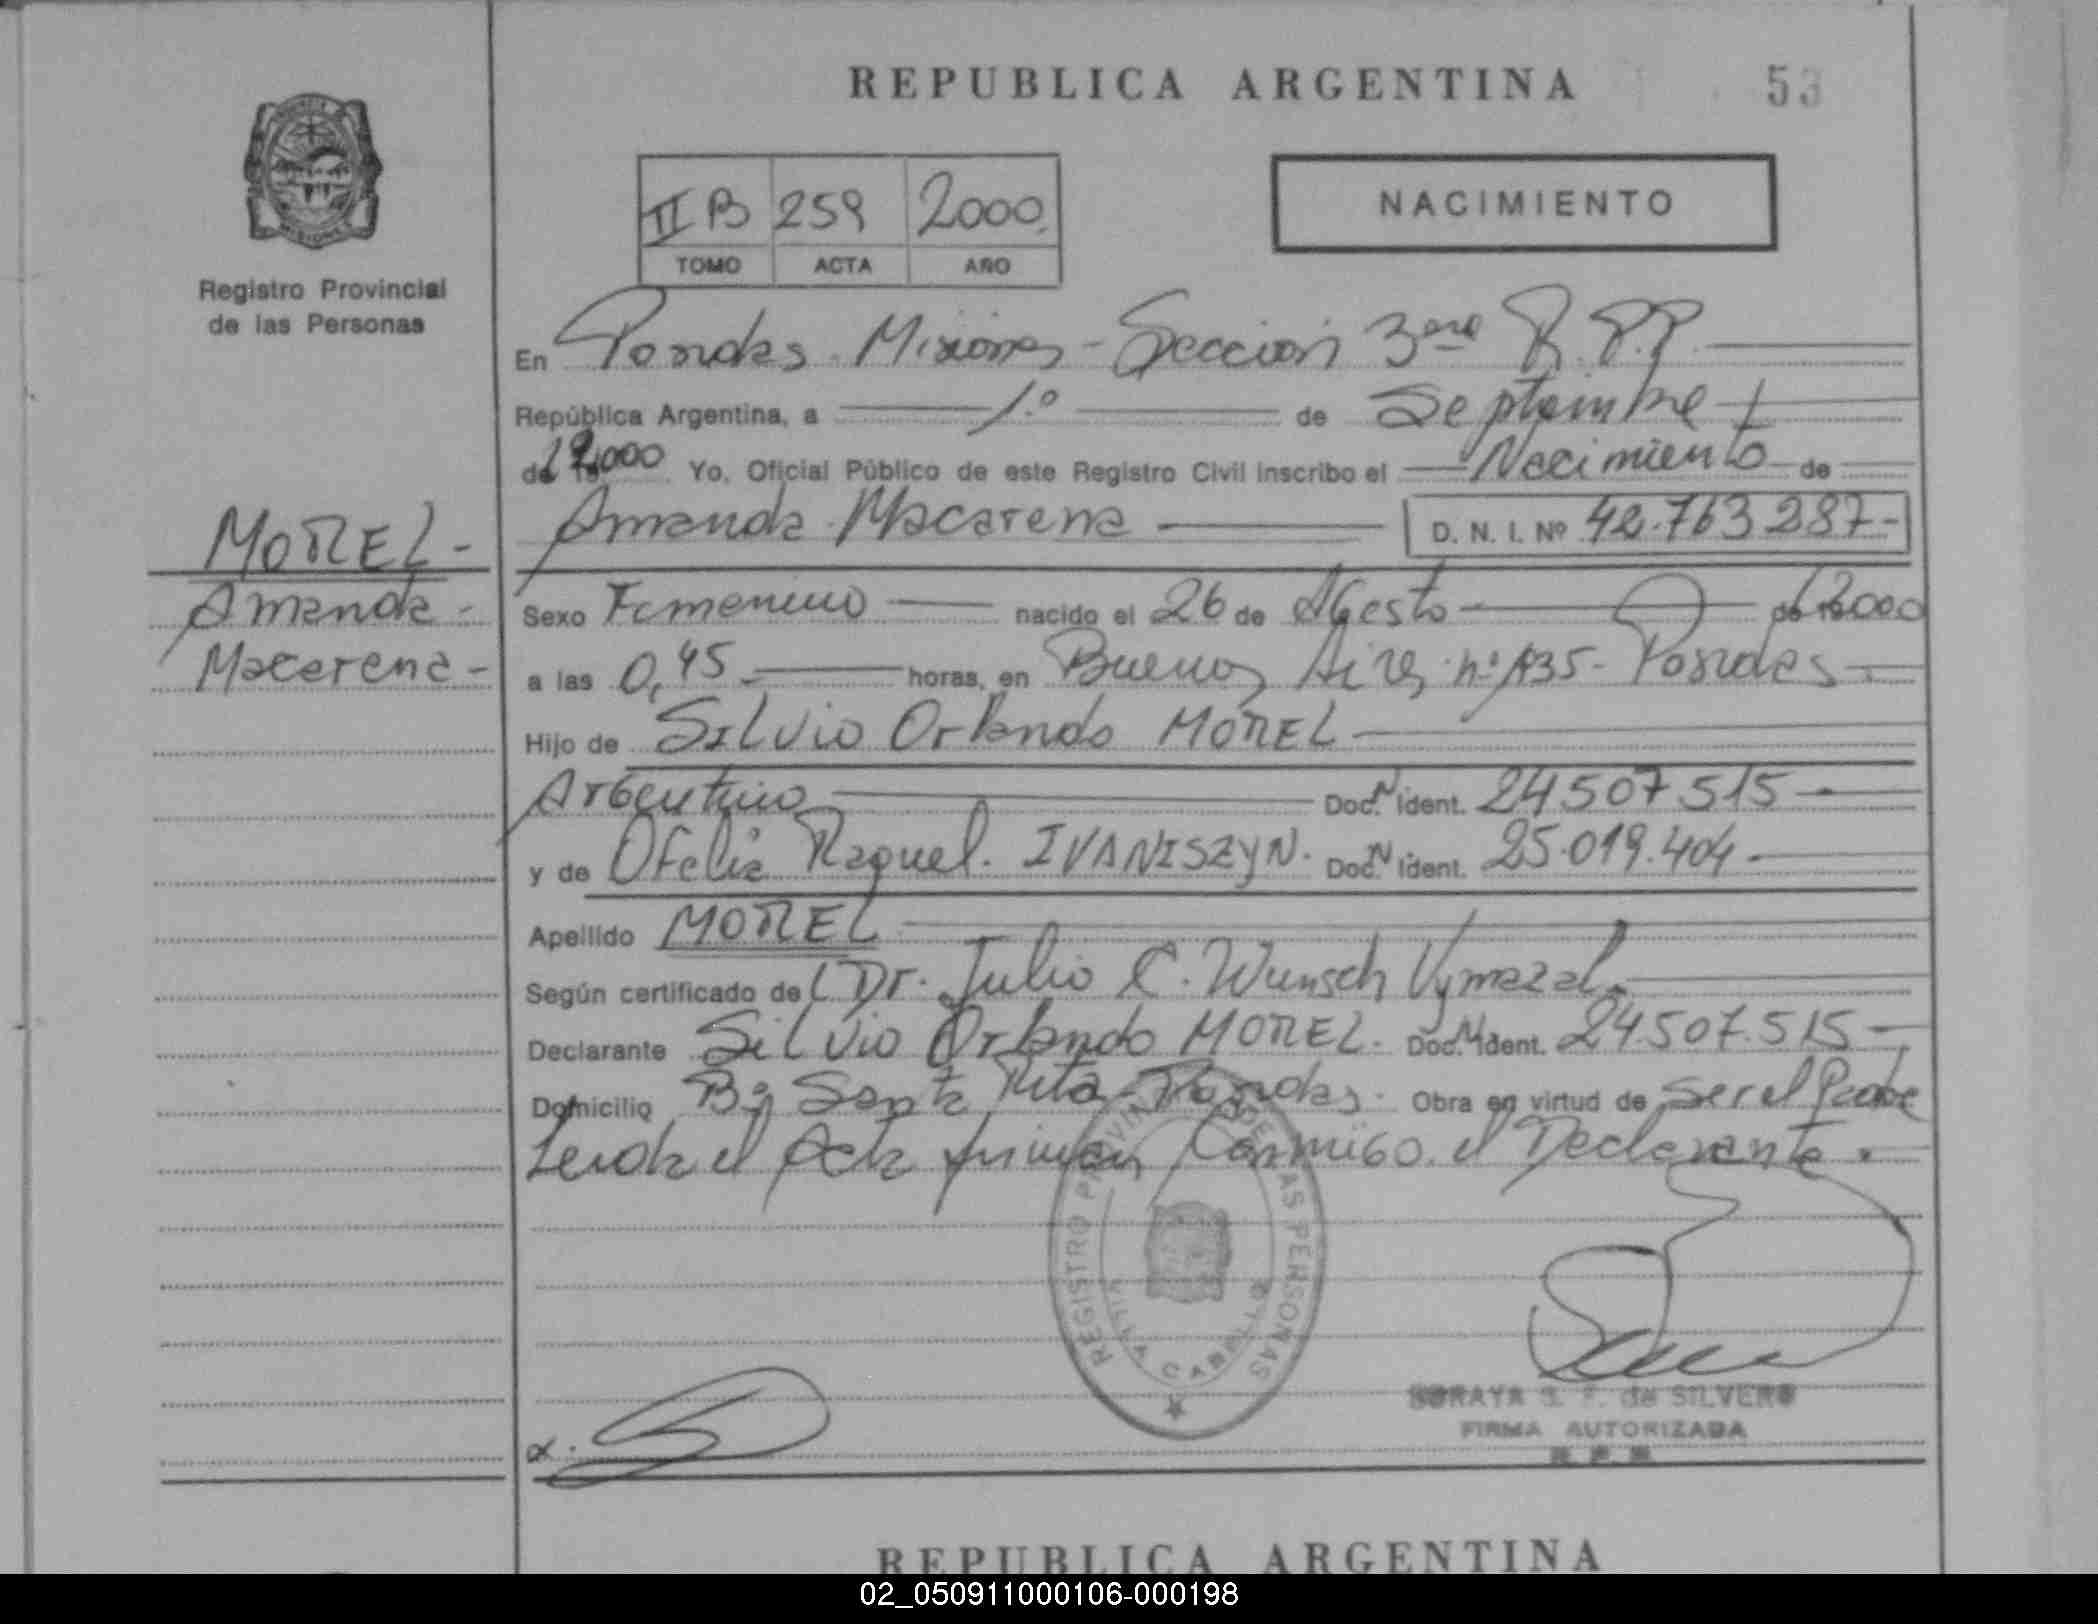 REPUBLICA ARGENTINA
53
II B 259 2000
TOMO ACTA AÑO
NACIMIENTO
Registro Provincial
de las Personas
En Posadas Misiones - Sección 3era R.P.P.
República Argentina, a 1º de Septiembre
de 2000 Yo, Oficial Público de este Registro Civil inscribo el Nacimiento de
Amanda Macarena D. N. I. Nº 42.763.287-
MOREL-
Amanda-
Macarena-
Sexo Femenino nacido el 26 de AGosto de 2000
a las 0,45 horas, en Buenos Aires nº 135 - Posadas
Hijo de SILVIO Orlando MOREL
Argentino Doc. N Ident. 24.507.515
y de Ofelia Raquel. IVANISZYN. Doc. N Ident. 25.019.404
Apellido MOREL
Según certificado del Dr. Julio C. Wunsch Vymazal
Declarante Silvio Orlando MOREL. Doc. N Ident. 24.507.515
Domicilio Bº Santa Rita - Posadas. Obra en virtud de ser el Padre
Leída el Acta firman Conmigo el Declarante.
REGISTRO PROVINCIAL DE LAS PERSONAS
VILLA CABELLO
SORAYA S. F. de SILVERO
FIRMA AUTORIZADA
REPUBLICA ARGENTINA
02_050911000106-000198